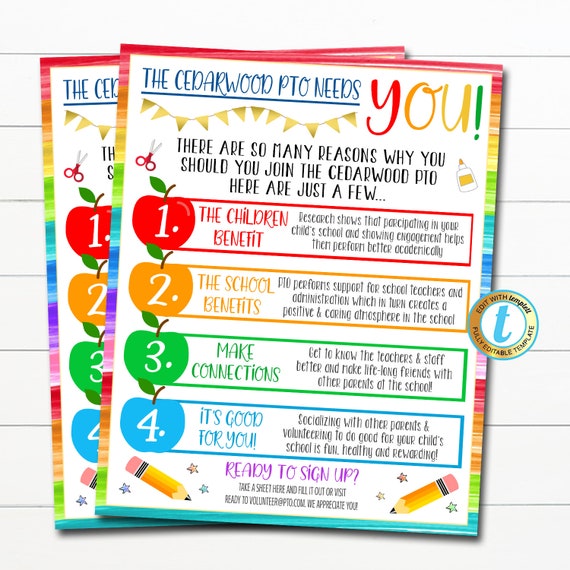 THE CEDARWOOD PTO NEEDS
YOU!
THERE ARE SO MANY REASONS WHY YOU
SHOULD YOU JOIN THE CEDARWOOD PTO
HERE ARE JUST A FEW...
1.
THE CHILDREN
BENEFIT
Research shows that parcicipating in your
child's school and showing engagement helps
them perform better academically
2.
THE SCHOOL
BENEFITS
PTO performs support for school teachers and
administration which in turn creates a
positive & caring atmosphere in the school
3.
MAKE
CONNECTIONS
Get to know the teachers & staff
better and make life-long friends with
other parents at the school!
4.
iT'S GOOD
FOR YOU!
Socializing with other parents &
volunteering to do good for your child's
school is fun, healthy and rewarding!
READY TO SIGN UP?
TAKE A SHEET HERE AND FILL IT OUT OR VISIT
READY TO VOLUNTEER@PTO.COM. WE APPRECIATE YOU!
EDIT WITH templett
t
FULLY EDITABLE TEMPLATE
THE
THER
SHO
1.
2.
3.
4